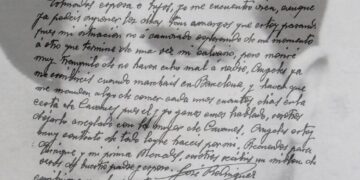 Adorados esposa e hijos, yo me encuentro bien, aunque
ya podeis suponer los días tan amargos que estoy pasando
pues mi situacion no a cambiado esperando de un momento
a otro que termine de una vez mi calvario, pero moriré
muy tranquilo de no haver echo mal a nadie, Angeles ya
me cuando marchais en Barcelona y haver que
me mandeis algo de comer cada unos cuantos dias en la
cesta de Carmen pues el y yo ganas emos hablado, vosotros
dejarlo arreglado con la mujer de Carmen, Angeles estoy
muy contento de todo lo que haceis por mi, Recuerdos para
Enrique y mi prima Mercedes, vosotros recibir un millon de
de vuestro padre y esposo.
José Rodriguez